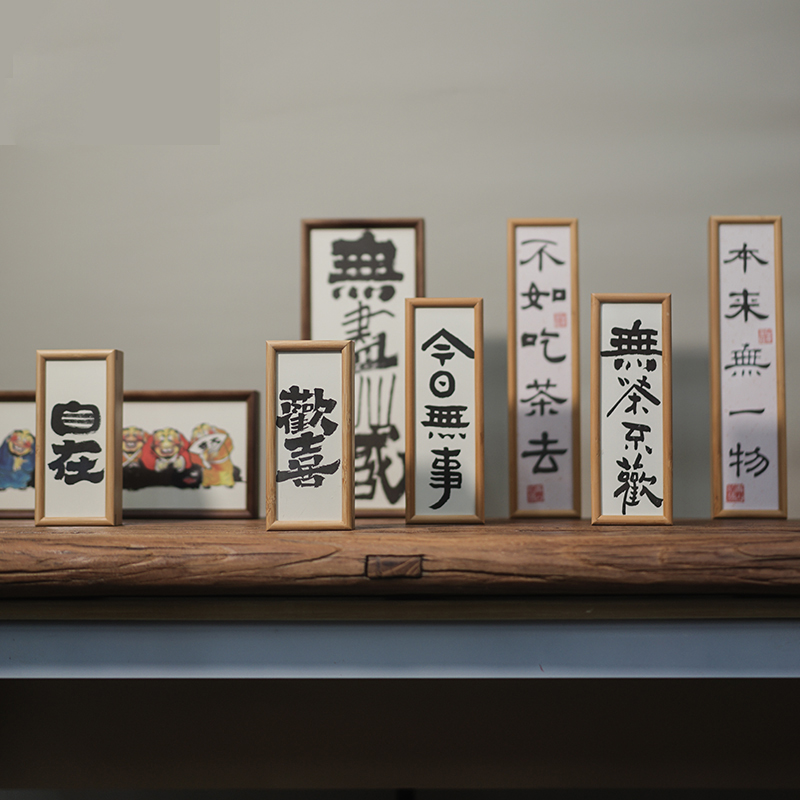 自在
歡喜
無盡藏
今日無事
不如吃茶去
無茶不歡
本来無一物